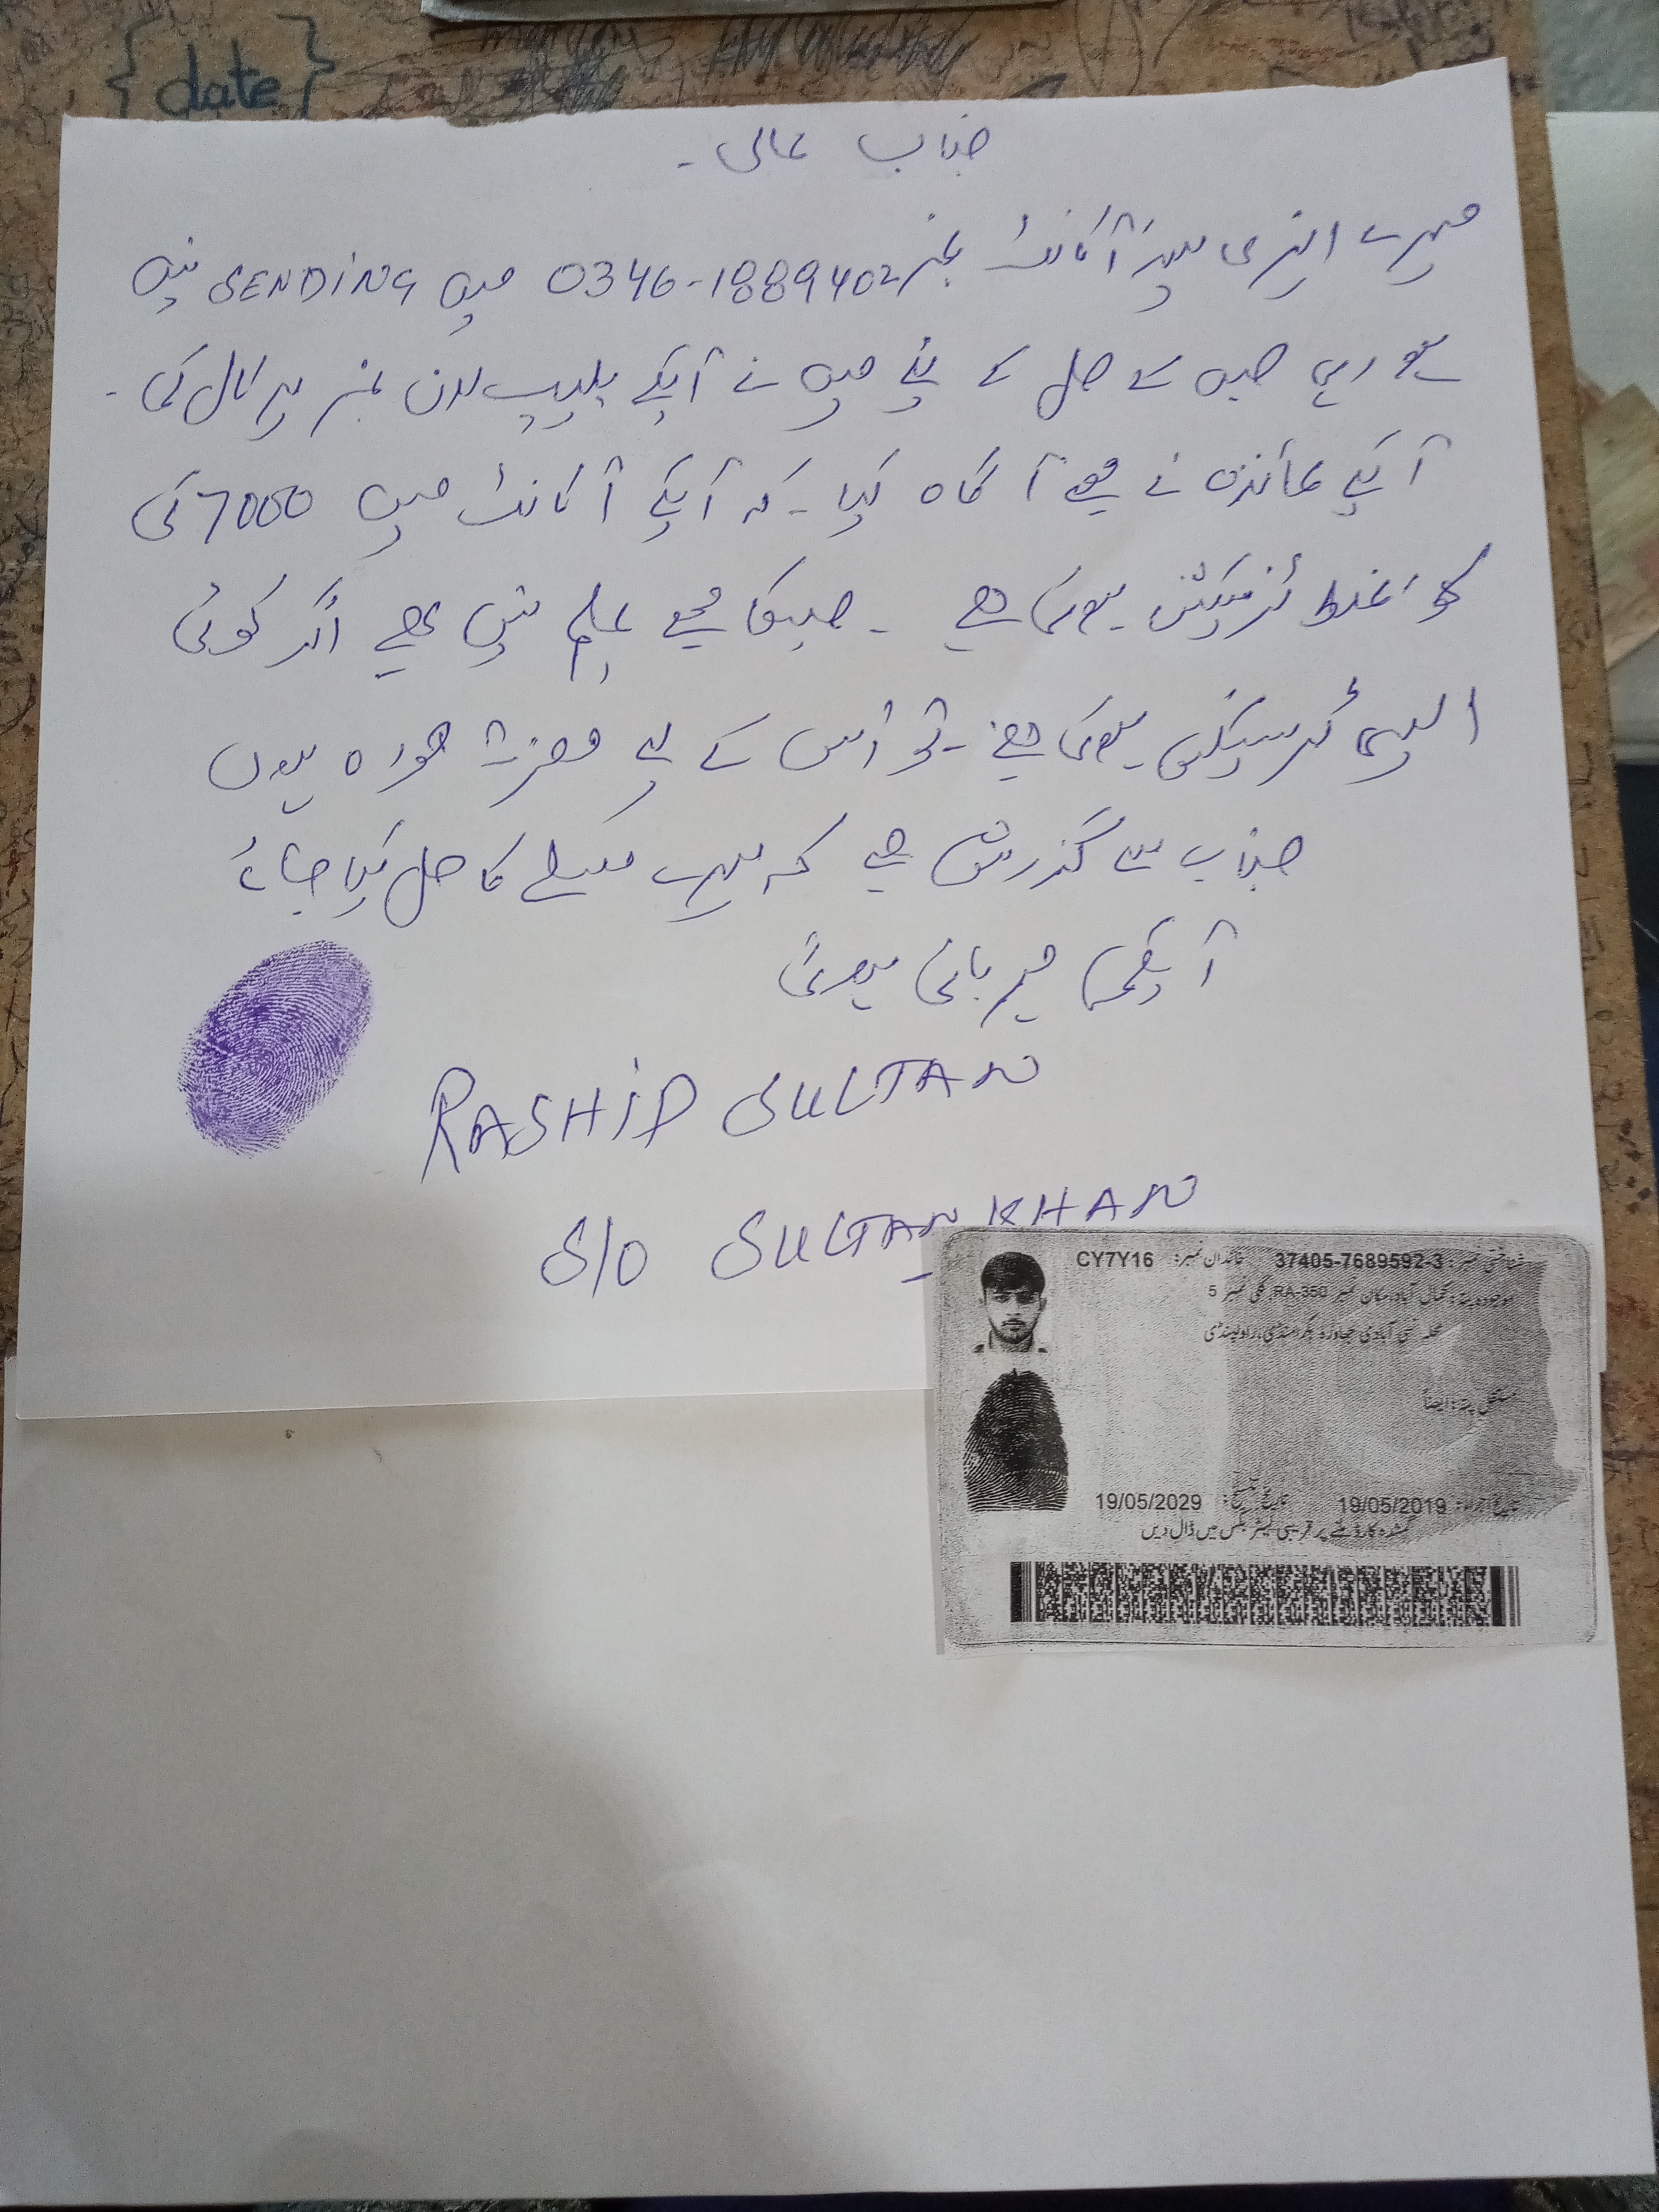 {date}
جناب عالی۔
میرے ایزی پیسہ اکانٹ نمبر 0346-1889402 میں SENDING نہیں
ہو رہی جس کے حل کے لئے میں نے آپکے ہیلپ لائن نمبر پر کال کی۔
آپکے نمائندہ نے مجھے آگاہ کیا۔ کہ آپکے آکانٹ میں 7000 کی
کوئی غلط ٹرنزیکشن ہوئی ہے۔ جسکا مجھے علم نہیں ہے اگر کوئی
ایسی ٹرنسیکشن ہوئی ہے۔ تو اُس کے لیے معزرت خواہ ہوں
جناب سے گذارش ہے کہ میرے مسلے کا حل کیا جائے
آپکی مہربانی ہوگی
RASHID SULTAN
S/O SULTAN KHAN
شناختی نمبر: 37405-7689592-3 خاندان نمبر: CY7Y16
موجودہ پتہ: کمال آباد، مکان نمبر RA-350، گلی نمبر 5
محلہ نئی آبادی ٹاہلی بکرامنڈی، راولپنڈی
مستقل پتہ: ایضاً
تاریخ اجراء: 19/05/2019 تاریخ تنسیخ: 19/05/2029
گمشدہ کارڈ ملنے پر قریبی لیٹر بکس میں ڈال دیں